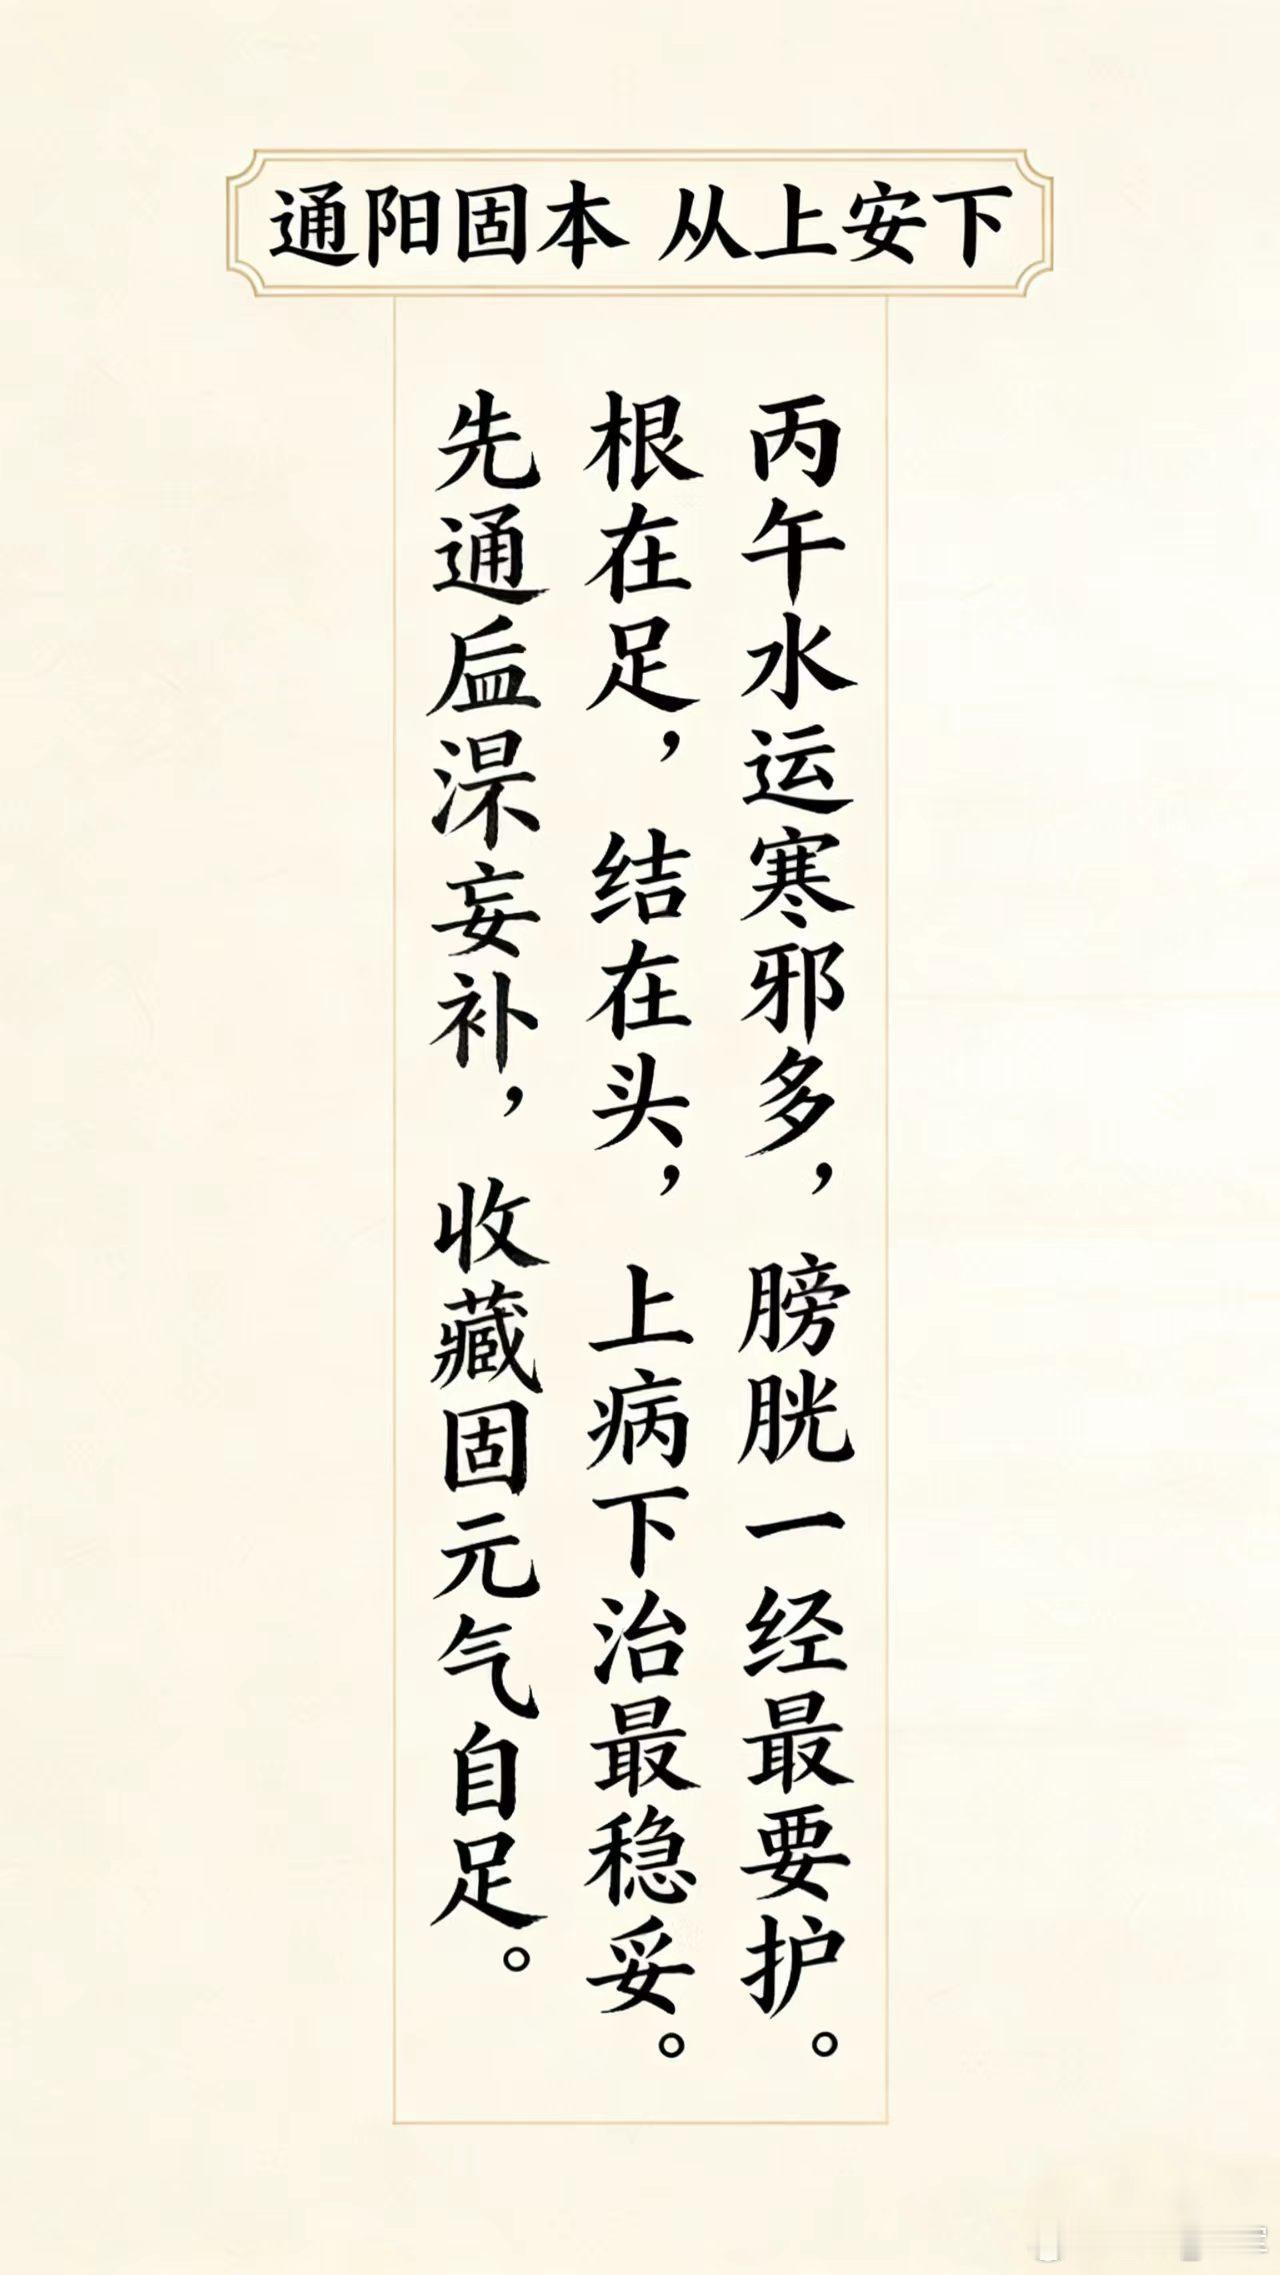 通阳固本 从上安下
丙午水运寒邪多，膀胱一经最要护。
根在足，结在头，上病下治最稳妥。
先通妄补，收藏固元气自足。